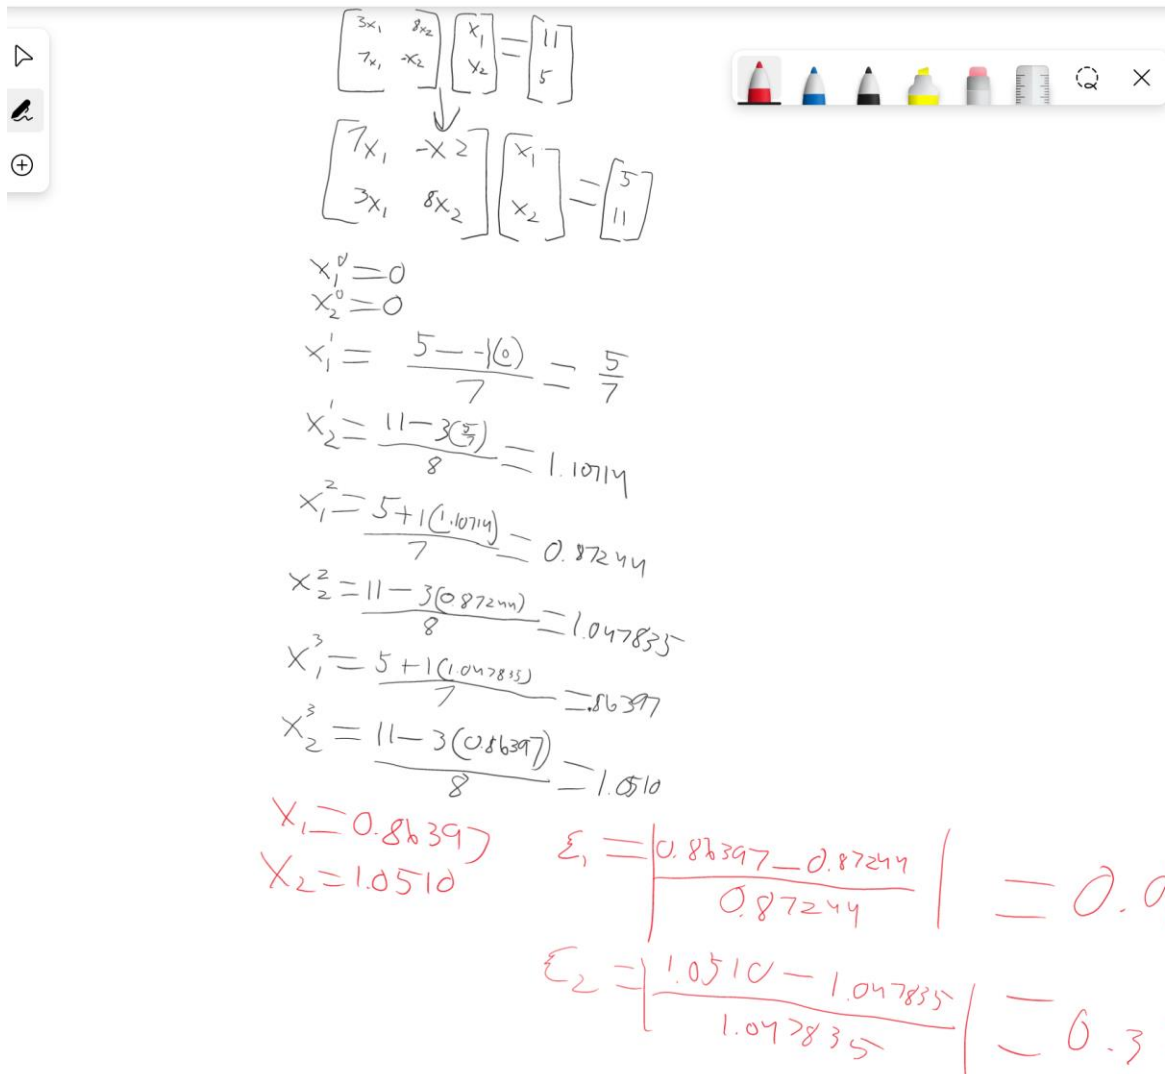 [3x₁ 8x₂] [x₁] = [11]
[7x₁ -x₂] [x₂] [5]
[7x₁ -x2] [x₁] = [5]
[3x₁ 8x₂] [x₂] [11]
x₁⁰ = 0
x₂⁰ = 0
x₁¹ = (5 - -1(0))/7 = 5/7
x₂¹ = (11 - 3(5/7))/8 = 1.10714
x₁² = (5 + 1(1.10714))/7 = 0.87244
x₂² = (11 - 3(0.87244))/8 = 1.047835
x₁³ = (5 + 1(1.047835))/7 = .86397
x₂³ = (11 - 3(0.86397))/8 = 1.0510
x₁ = 0.86397
x₂ = 1.0510
ε₁ = |(0.86397 - 0.87244)/0.87244| = 0.
ε₂ = |(1.0510 - 1.047835)/1.047835| = 0.3